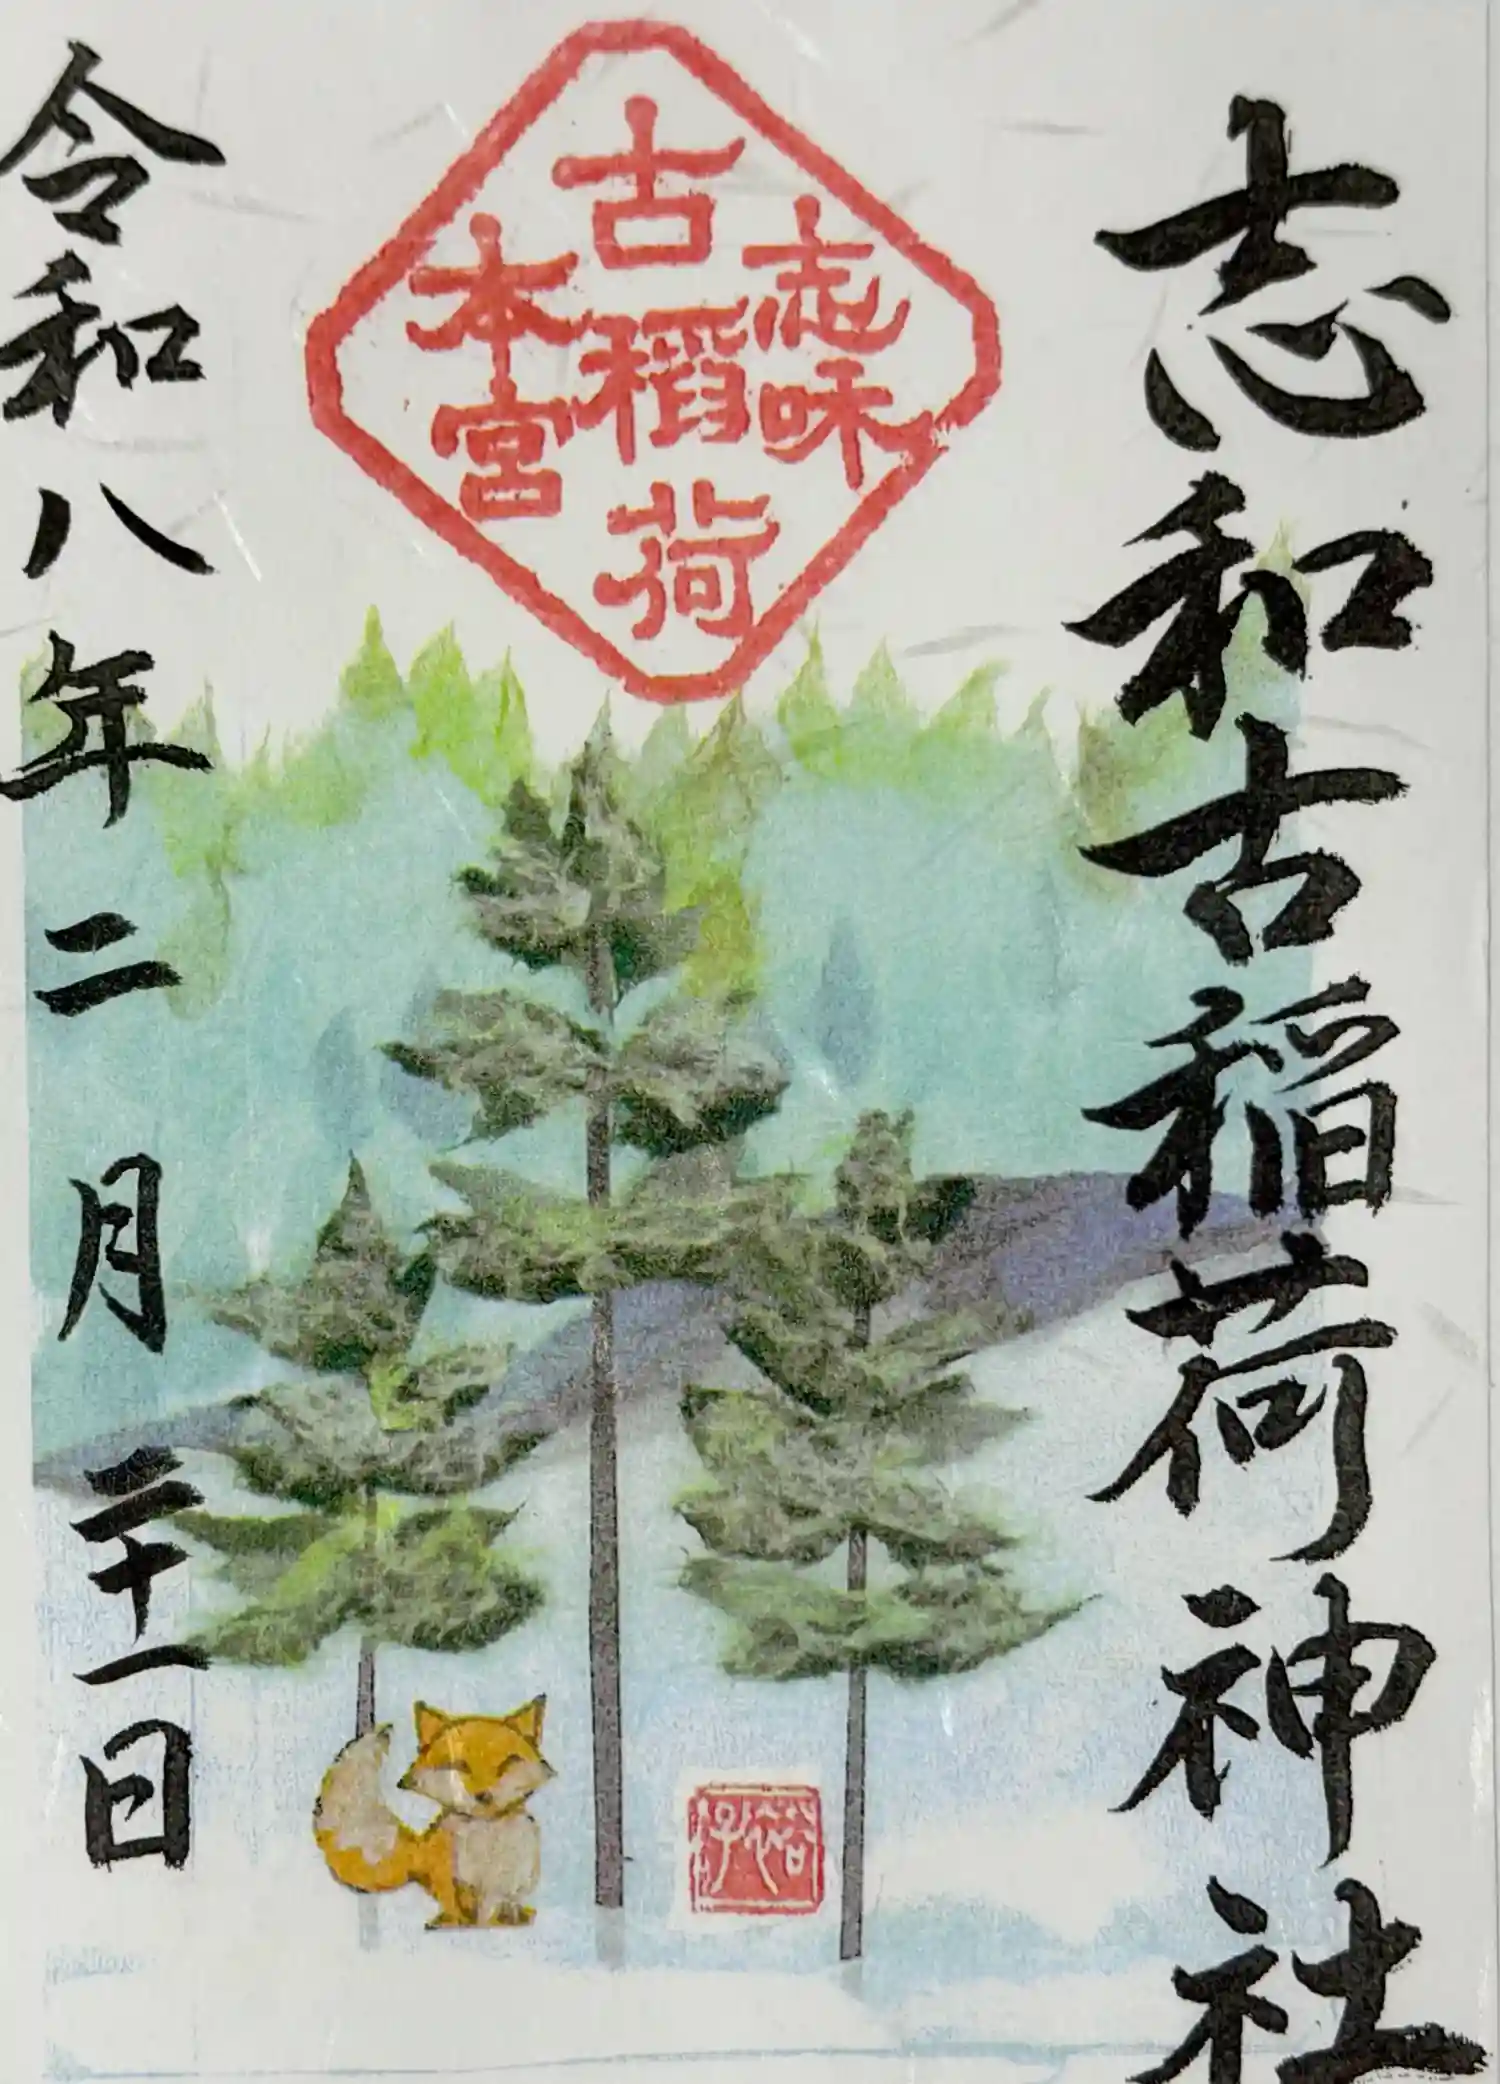 志和古稲荷神社
志咊
古稻荷
本宮
令和八年二月二十一日